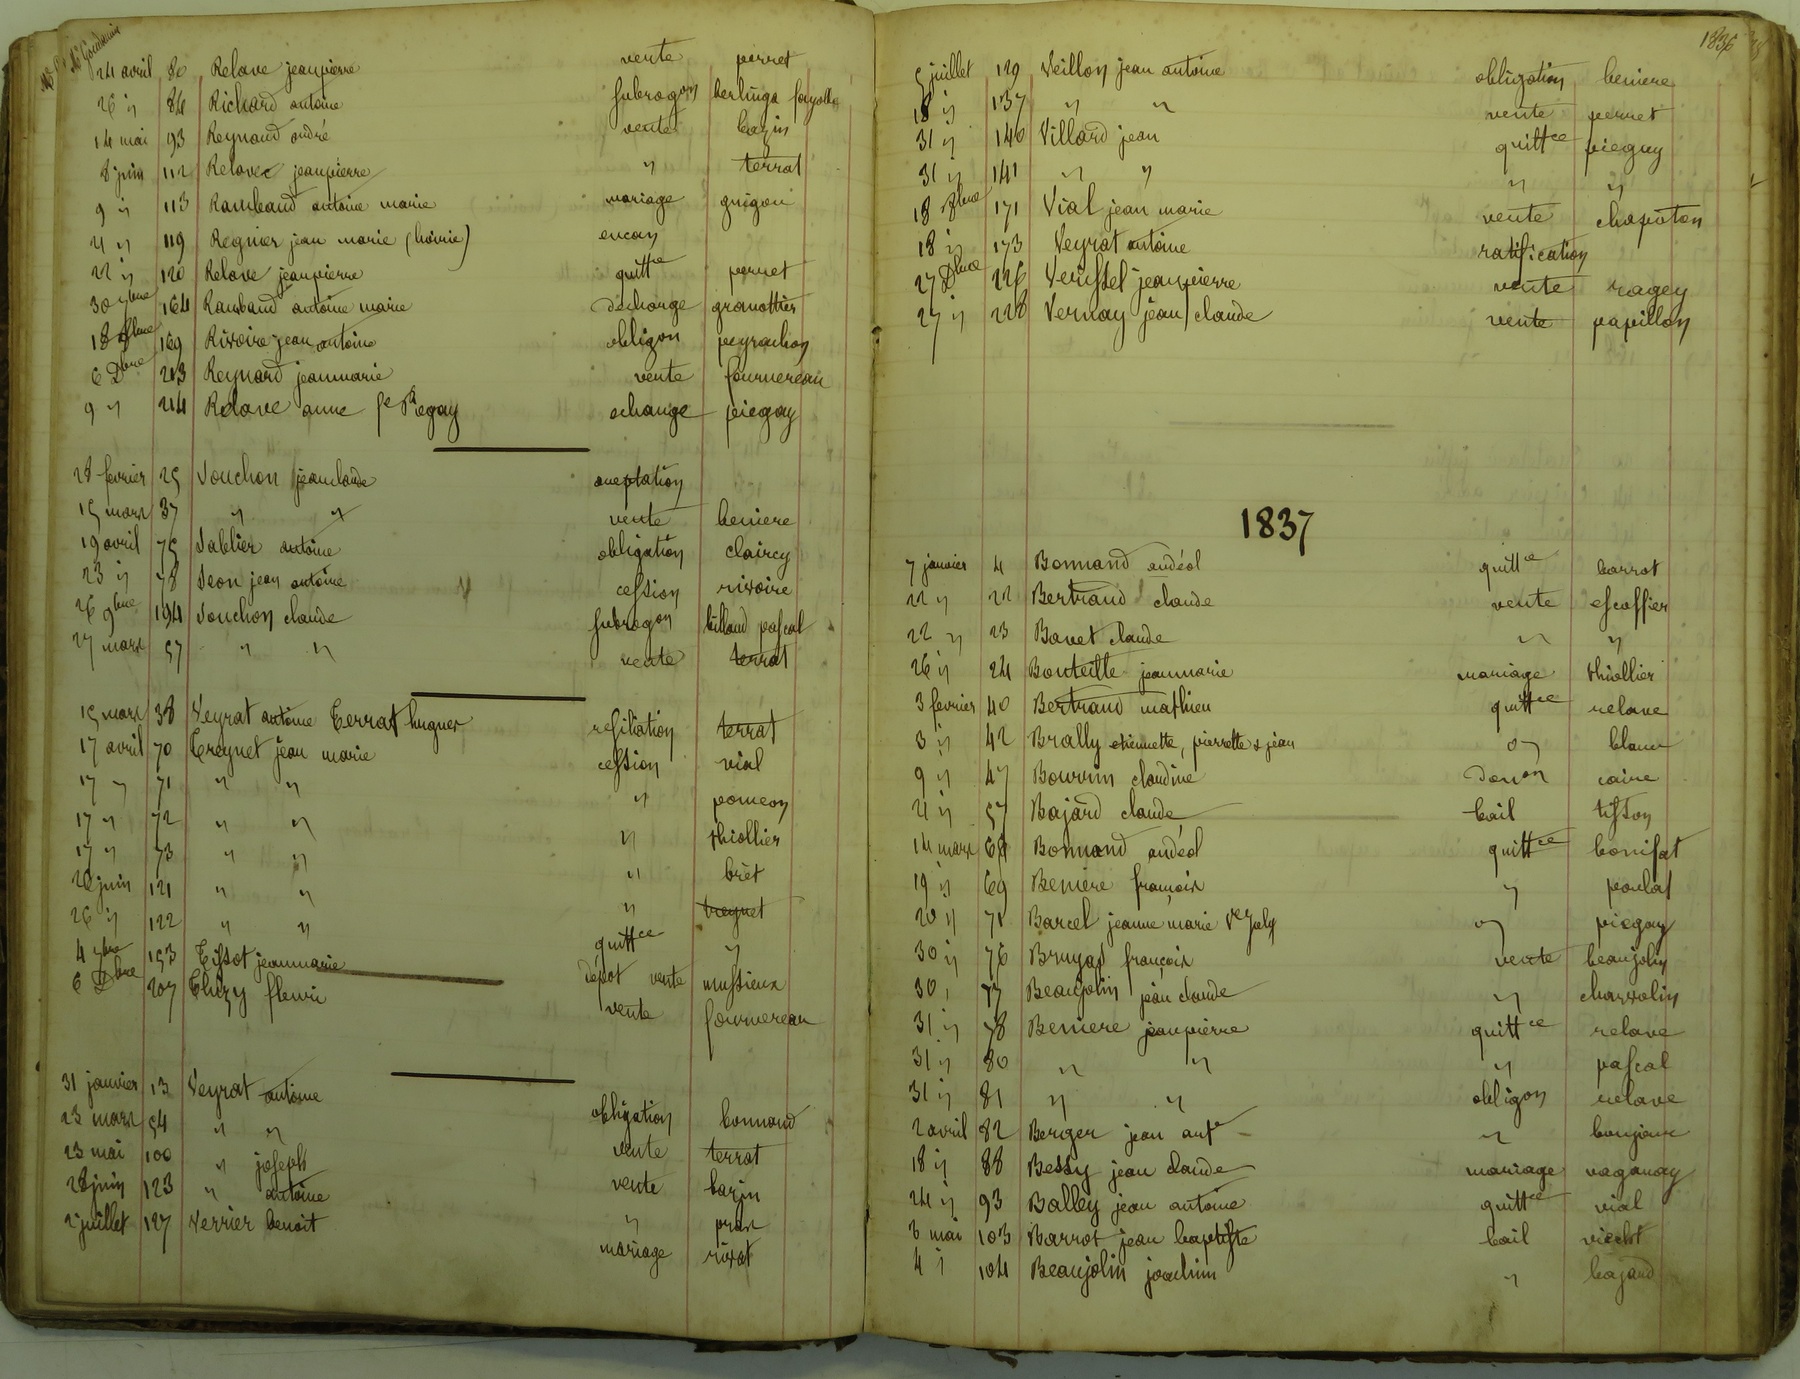 24 avril 80 Relave jeanpierre vente perret
26 " 84 Richard antoine subrogon berlinga fayolle
14 mai 93 Reynaud andré vente bazin
8 juin 112 Relave jeanpierre " terrat
9 " 113 Rambaud antoine marie mariage guigou
21 " 119 Regnier jean marie (hoirie) encan
22 " 120 Relave jeanpierre quittce perret
30 7bre 164 Rambaud antoine marie décharge granottier
18 8bre 169 Rivoire jean antoine obligon peyrachon
6 Dbre 213 Reynard jeanmarie vente fournereau
9 " 214 Relave anne fe Regay echange piegay
28 fevrier 25 Souchon jeanclaude aceptation
15 mars 37 " " vente beniere
19 avril 75 Sablier antoine obligation claircy
23 " 78 Seon jean antoine cession rivoire
26 9bre 194 Souchon claude subrogon billaud pascal
27 mars 57 " " vente terrat
15 mars 38 Veyrat antoine Terrat hugues resiliation terrat
17 avril 70 Treynet jean marie cession vial
17 " 71 " " " pomeon
17 " 72 " " " thiollier
17 " 73 " " " brèt
26 juin 121 " " " treynet
26 " 122 " " quittce "
4 7bre 153 Tissot jeanmarie dépot vente mussieux
6 Dbre 207 Thizy fleuri vente fournereau
31 janvier 13 Veyrat antoine obligation bonnand
23 mars 54 " " vente terrat
23 mai 100 " joseph vente bazin
28 juin 123 " antoine " prax
2 juillet 127 Verrier benoit mariage rivat
1836
5 juillet 129 Veillon jean antoine obligation beniere
18 " 137 " " vente perret
31 " 140 Villard jean quittce piegay
31 " 141 " " " "
18 8bre 171 Vial jean marie vente chaputon
18 " 173 Veyrat antoine ratification
27 Dbre 226 Verissel jeanpierre vente ragey
27 " 228 Vernay jean claude vente papillon
1837
7 janvier 4 Bonnand andéol quittce barrot
22 " 22 Bertrand claude vente escoffier
22 " 23 Bavet claude " "
26 " 24 Bouteille jeanmarie mariage thiollier
3 fevrier 40 Bertrand mathieu quittce relave
3 " 42 Brally etiennette, pierrette & jean " blanc
9 " 47 Bourrin claudine Donon caire
21 " 57 Bajard claude bail tisson
14 mars 68 Bonnand andéol quittce bonifat
19 " 69 Beniere françois " poulat
20 " 71 Barcel jeanne marie ve july " piegay
30 " 76 Bruyas françois vente beaujolin
30 " 77 Beaujolin jean claude " charvolin
31 " 78 Beniere jeanpierre quittce relave
31 " 80 " " " pascal
31 " 81 " " obligon relave
2 avril 82 Berger jean ante " bonjour
18 " 88 Bessy jean claude mariage vaganay
24 " 93 Balley jean antoine quittce vial
3 mai 103 Barrot jean baptiste bail viallet
4 " 104 Beaujolin joachim " bajard